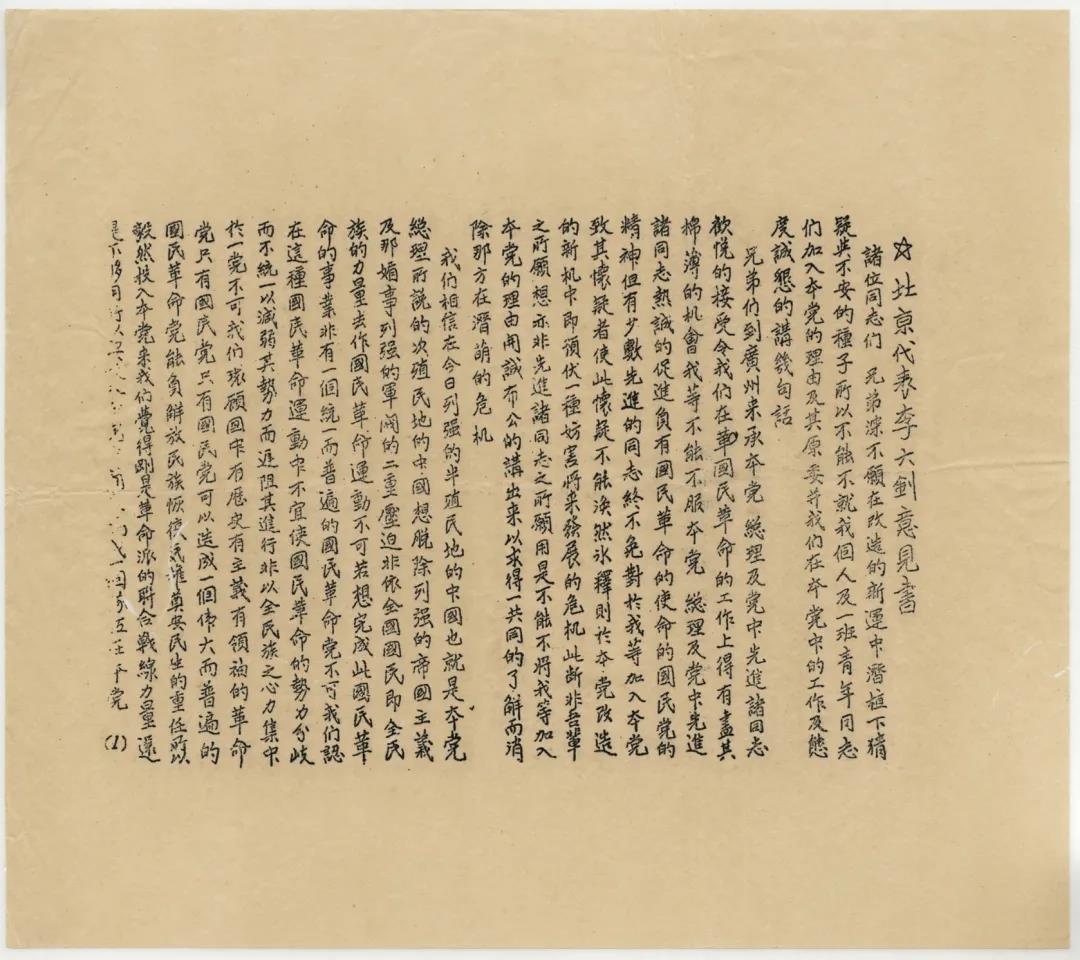 ☆北京代表李大釗意見書
諸位同志們 兄弟深不願在改造的新運中潛植下猜
疑與不安的種子所以不能不就我個人及一班青年同志
們加入本党的理由及其原委并我們在本党中的工作及態
度誠懇的講幾句話
兄弟們到廣州来承本党 總理及党中先進諸同志
歡悅的接受令我们在國民革命的工作上得有盡其
棉薄的机會我等不能不服本党 總理及党中先進
諸同志熱誠的促進負有國民革命的使命的國民党的
精神但有少數先進的同志終不免對於我等加入本党
致其懷疑者使此懷疑不能渙然氷釋則於本党改造
的新机中即預伏一種妨害將来發展的危机此断非吾輩
之所願想亦非先進諸同志之所願用是不能不將我等加入
本党的理由開誠布公的講出来以求得一共同的了解而消
除那方在潛萌的危机
我们相信在今日列强的半殖民地的中國也就是本党
總理所說的次殖民地的中國想脫除列强的帝國主義
及那媚事列强的軍閥的二重壓迫非依全國國民即全民
族的力量去作國民革命運動不可若想完成此國民革
命的事業非有一個統一而普遍的國民革命党不可我們認
在這種國民革命運動中不宜使國民革命的勢力分歧
而不統一以減弱其勢力而遲阻其進行非以全民族之心力集中
於一党不可我們環顧國中有歷史有主義有領袖的革命
党只有國民党只有國民党可以造成一個偉大而普遍的
國民革命党能負解放民族恢復民權奠安民生的重任所以
毅然投入本党来我們覺得剛是革命派的聯合戰線力量還
(1)